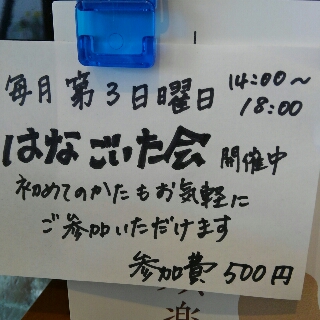 毎月第3日曜日 14:00〜18:00
はなごいた会 開催中
初めてのかたもお気軽に
ご参加いただけます
参加費 500円
楽